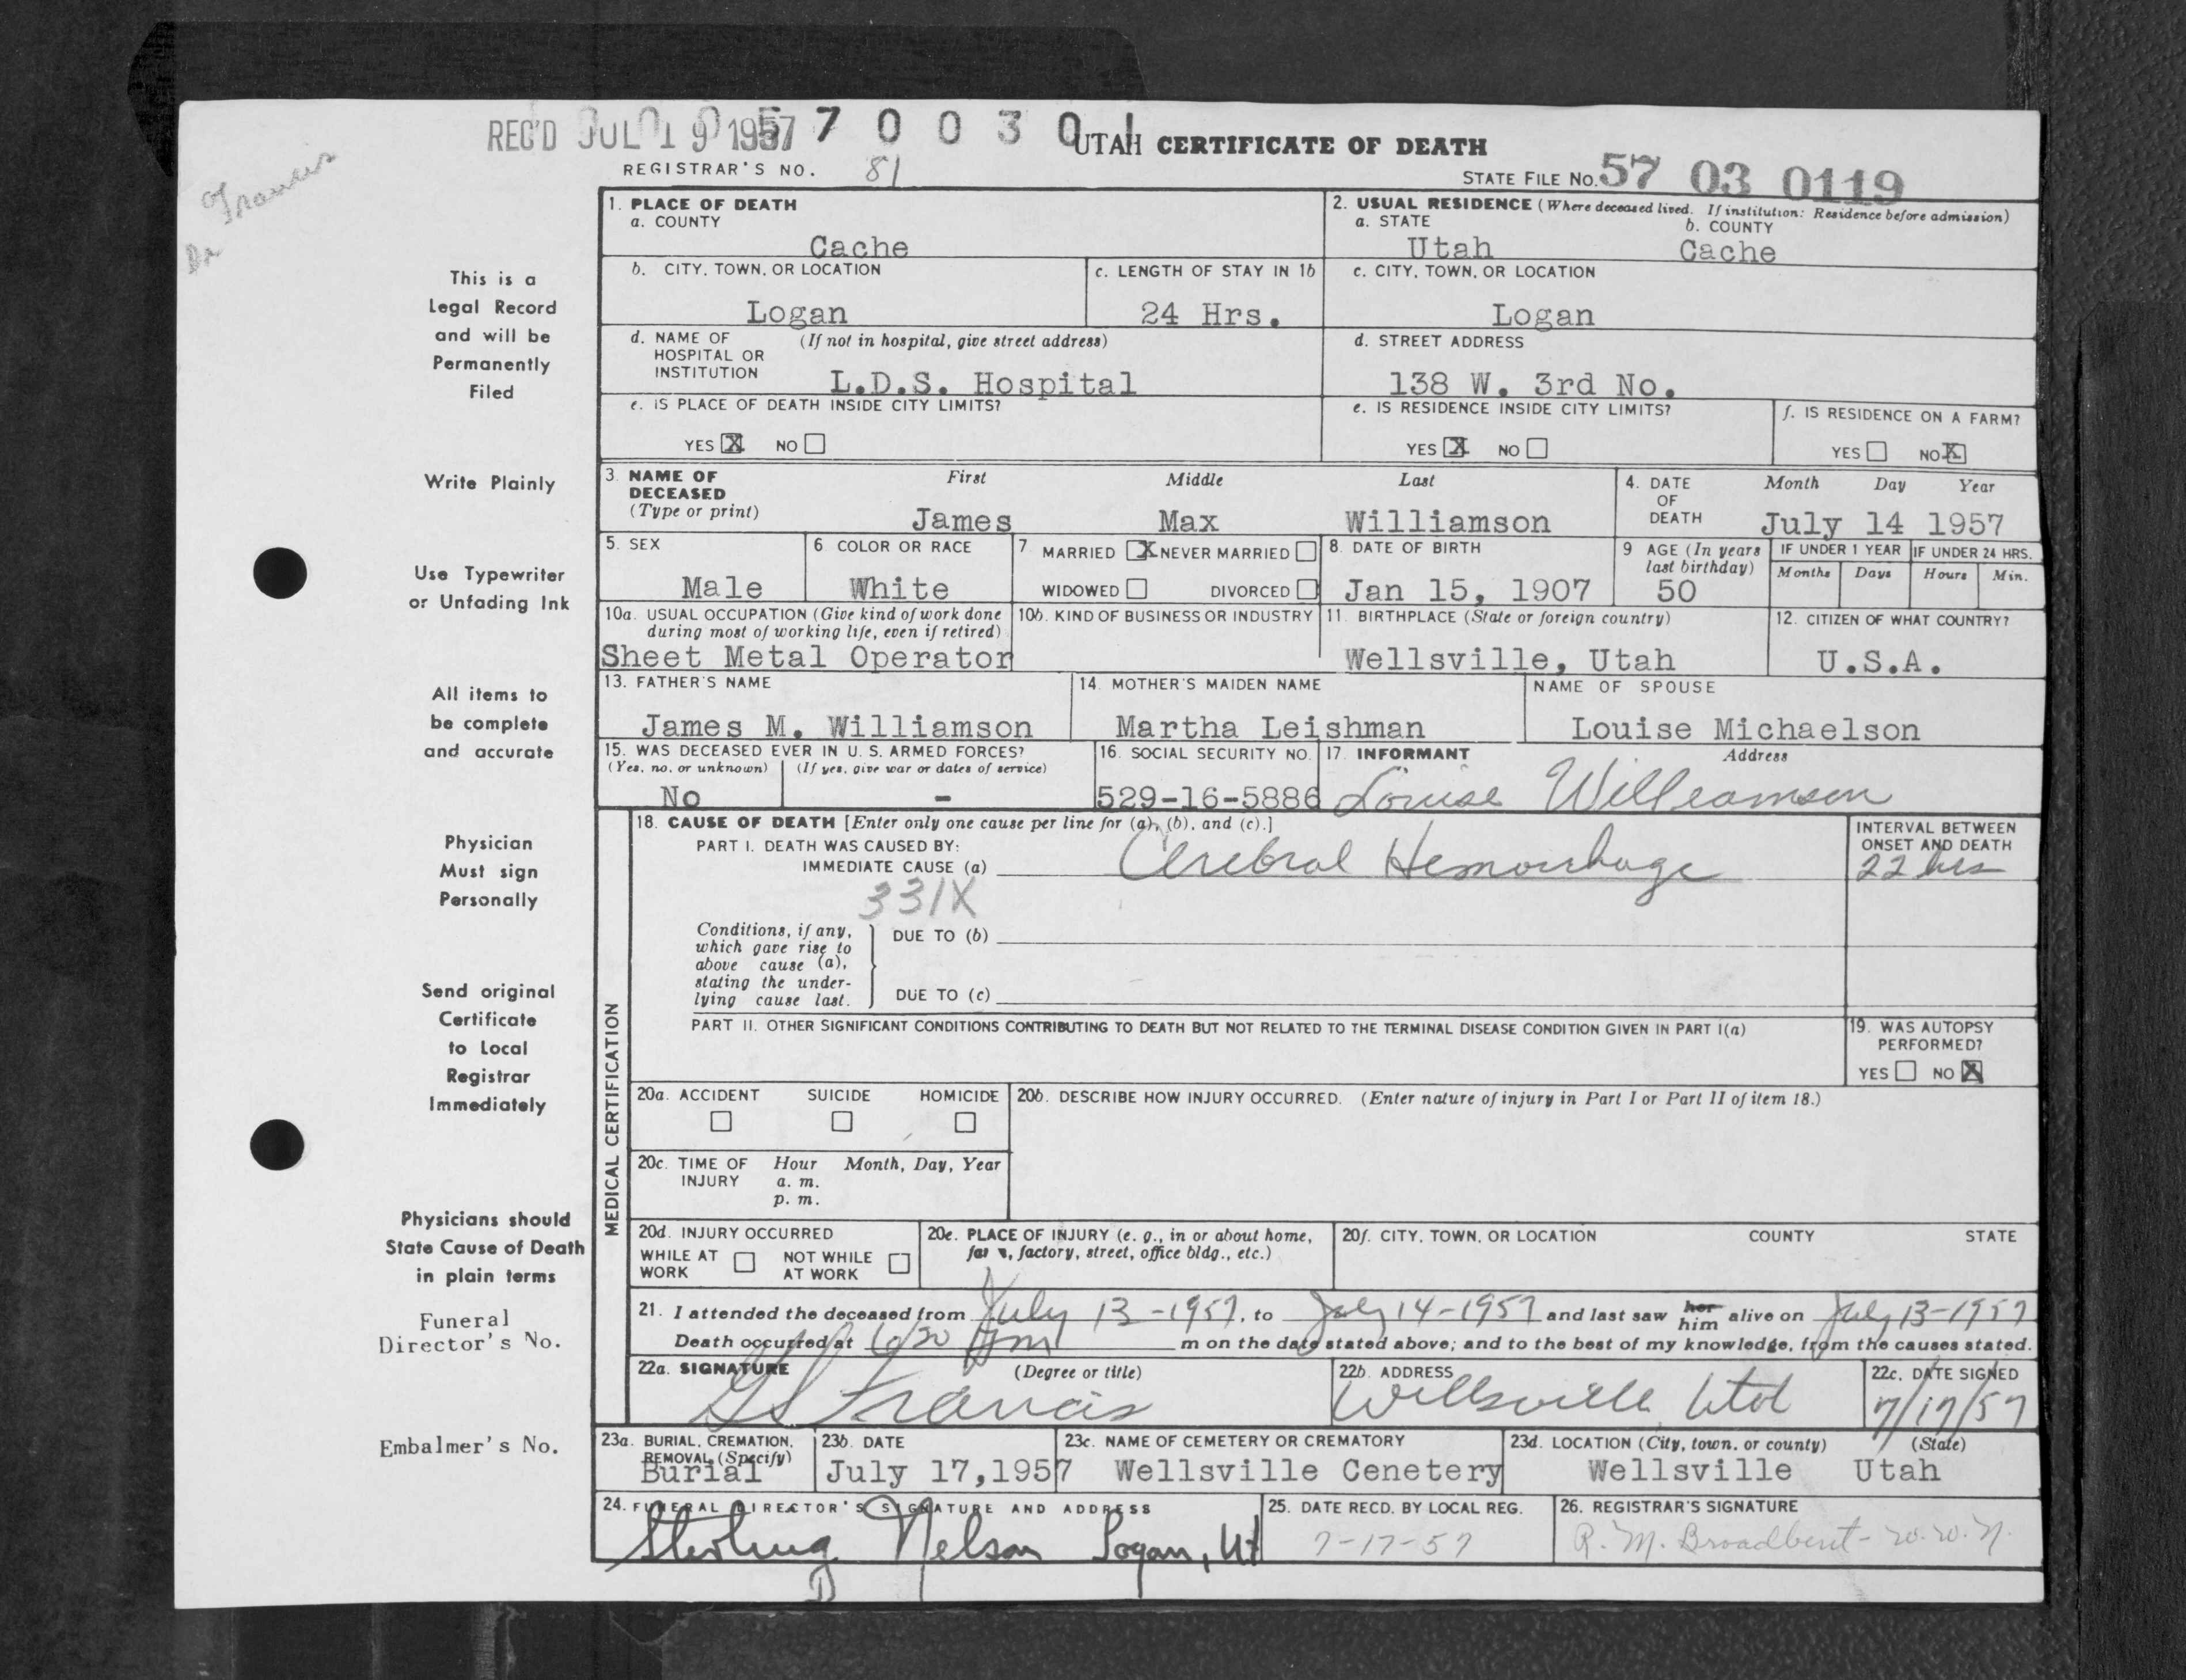 REC'D JUL 19 1957 7 0 0 3 0 1
UTAH CERTIFICATE OF DEATH
REGISTRAR'S NO. 81
STATE FILE NO. 57 03 0119
Dr Francis
This is a
Legal Record
and will be
Permanently
Filed
Write Plainly
Use Typewriter
or Unfading Ink
All items to
be complete
and accurate
Physician
Must sign
Personally
Send original
Certificate
to Local
Registrar
Immediately
Physicians should
State Cause of Death
in plain terms
Funeral
Director's No.
Embalmer's No.
1. PLACE OF DEATH
a. COUNTY
Cache
2. USUAL RESIDENCE (Where deceased lived. If institution: Residence before admission)
a. STATE b. COUNTY
Utah Cache
b. CITY, TOWN, OR LOCATION
Logan
c. LENGTH OF STAY IN 1b
24 Hrs.
c. CITY, TOWN, OR LOCATION
Logan
d. NAME OF (If not in hospital, give street address)
HOSPITAL OR
INSTITUTION L.D.S. Hospital
d. STREET ADDRESS
138 W. 3rd No.
e. IS PLACE OF DEATH INSIDE CITY LIMITS?
YES X NO
e. IS RESIDENCE INSIDE CITY LIMITS?
YES X NO
f. IS RESIDENCE ON A FARM?
YES NO X
3. NAME OF First Middle Last
DECEASED
(Type or print) James Max Williamson
4. DATE Month Day Year
OF
DEATH July 14 1957
5. SEX
Male
6. COLOR OR RACE
White
7. MARRIED X NEVER MARRIED
WIDOWED DIVORCED
8. DATE OF BIRTH
Jan 15, 1907
9 AGE (In years
last birthday)
50
IF UNDER 1 YEAR
Months Days
IF UNDER 24 HRS.
Hours Min.
10a. USUAL OCCUPATION (Give kind of work done
during most of working life, even if retired)
Sheet Metal Operator
10b. KIND OF BUSINESS OR INDUSTRY
11. BIRTHPLACE (State or foreign country)
Wellsville, Utah
12. CITIZEN OF WHAT COUNTRY?
U.S.A.
13. FATHER'S NAME
James M. Williamson
14. MOTHER'S MAIDEN NAME
Martha Leishman
NAME OF SPOUSE
Louise Michaelson
15. WAS DECEASED EVER IN U. S. ARMED FORCES?
(Yes, no, or unknown) (If yes, give war or dates of service)
No -
16. SOCIAL SECURITY NO.
529-16-5886
17. INFORMANT Address
Louise Williamson
MEDICAL CERTIFICATION
18. CAUSE OF DEATH [Enter only one cause per line for (a), (b), and (c).]
PART I. DEATH WAS CAUSED BY:
IMMEDIATE CAUSE (a) Cerebral Hemorrhage
331X
INTERVAL BETWEEN
ONSET AND DEATH
22 hrs
Conditions, if any,
which gave rise to
above cause (a),
stating the under-
lying cause last.
DUE TO (b)
DUE TO (c)
PART II. OTHER SIGNIFICANT CONDITIONS CONTRIBUTING TO DEATH BUT NOT RELATED TO THE TERMINAL DISEASE CONDITION GIVEN IN PART I(a)
19. WAS AUTOPSY
PERFORMED?
YES NO X
20a. ACCIDENT SUICIDE HOMICIDE
20b. DESCRIBE HOW INJURY OCCURRED. (Enter nature of injury in Part I or Part II of item 18.)
20c. TIME OF Hour Month, Day, Year
INJURY a. m.
p. m.
20d. INJURY OCCURRED
WHILE AT NOT WHILE
WORK AT WORK
20e. PLACE OF INJURY (e. g., in or about home,
farm, factory, street, office bldg., etc.)
20f. CITY, TOWN, OR LOCATION COUNTY STATE
21. I attended the deceased from July 13-1957, to July 14-1957 and last saw her him alive on July 13-1957
Death occurred at 6:20 Am m on the date stated above; and to the best of my knowledge, from the causes stated.
22a. SIGNATURE (Degree or title)
GS Francis
22b. ADDRESS
Wellsville Utah
22c. DATE SIGNED
7/17/57
23a. BURIAL, CREMATION,
REMOVAL (Specify)
Burial
23b. DATE
July 17,1957
23c. NAME OF CEMETERY OR CREMATORY
Wellsville Cenetery
23d. LOCATION (City, town, or county) (State)
Wellsville Utah
24. FUNERAL DIRECTOR'S SIGNATURE AND ADDRESS
Sterling Nelson Logan, Ut
25. DATE RECD. BY LOCAL REG.
7-17-57
26. REGISTRAR'S SIGNATURE
R. M. Broadbent - w.w.n.